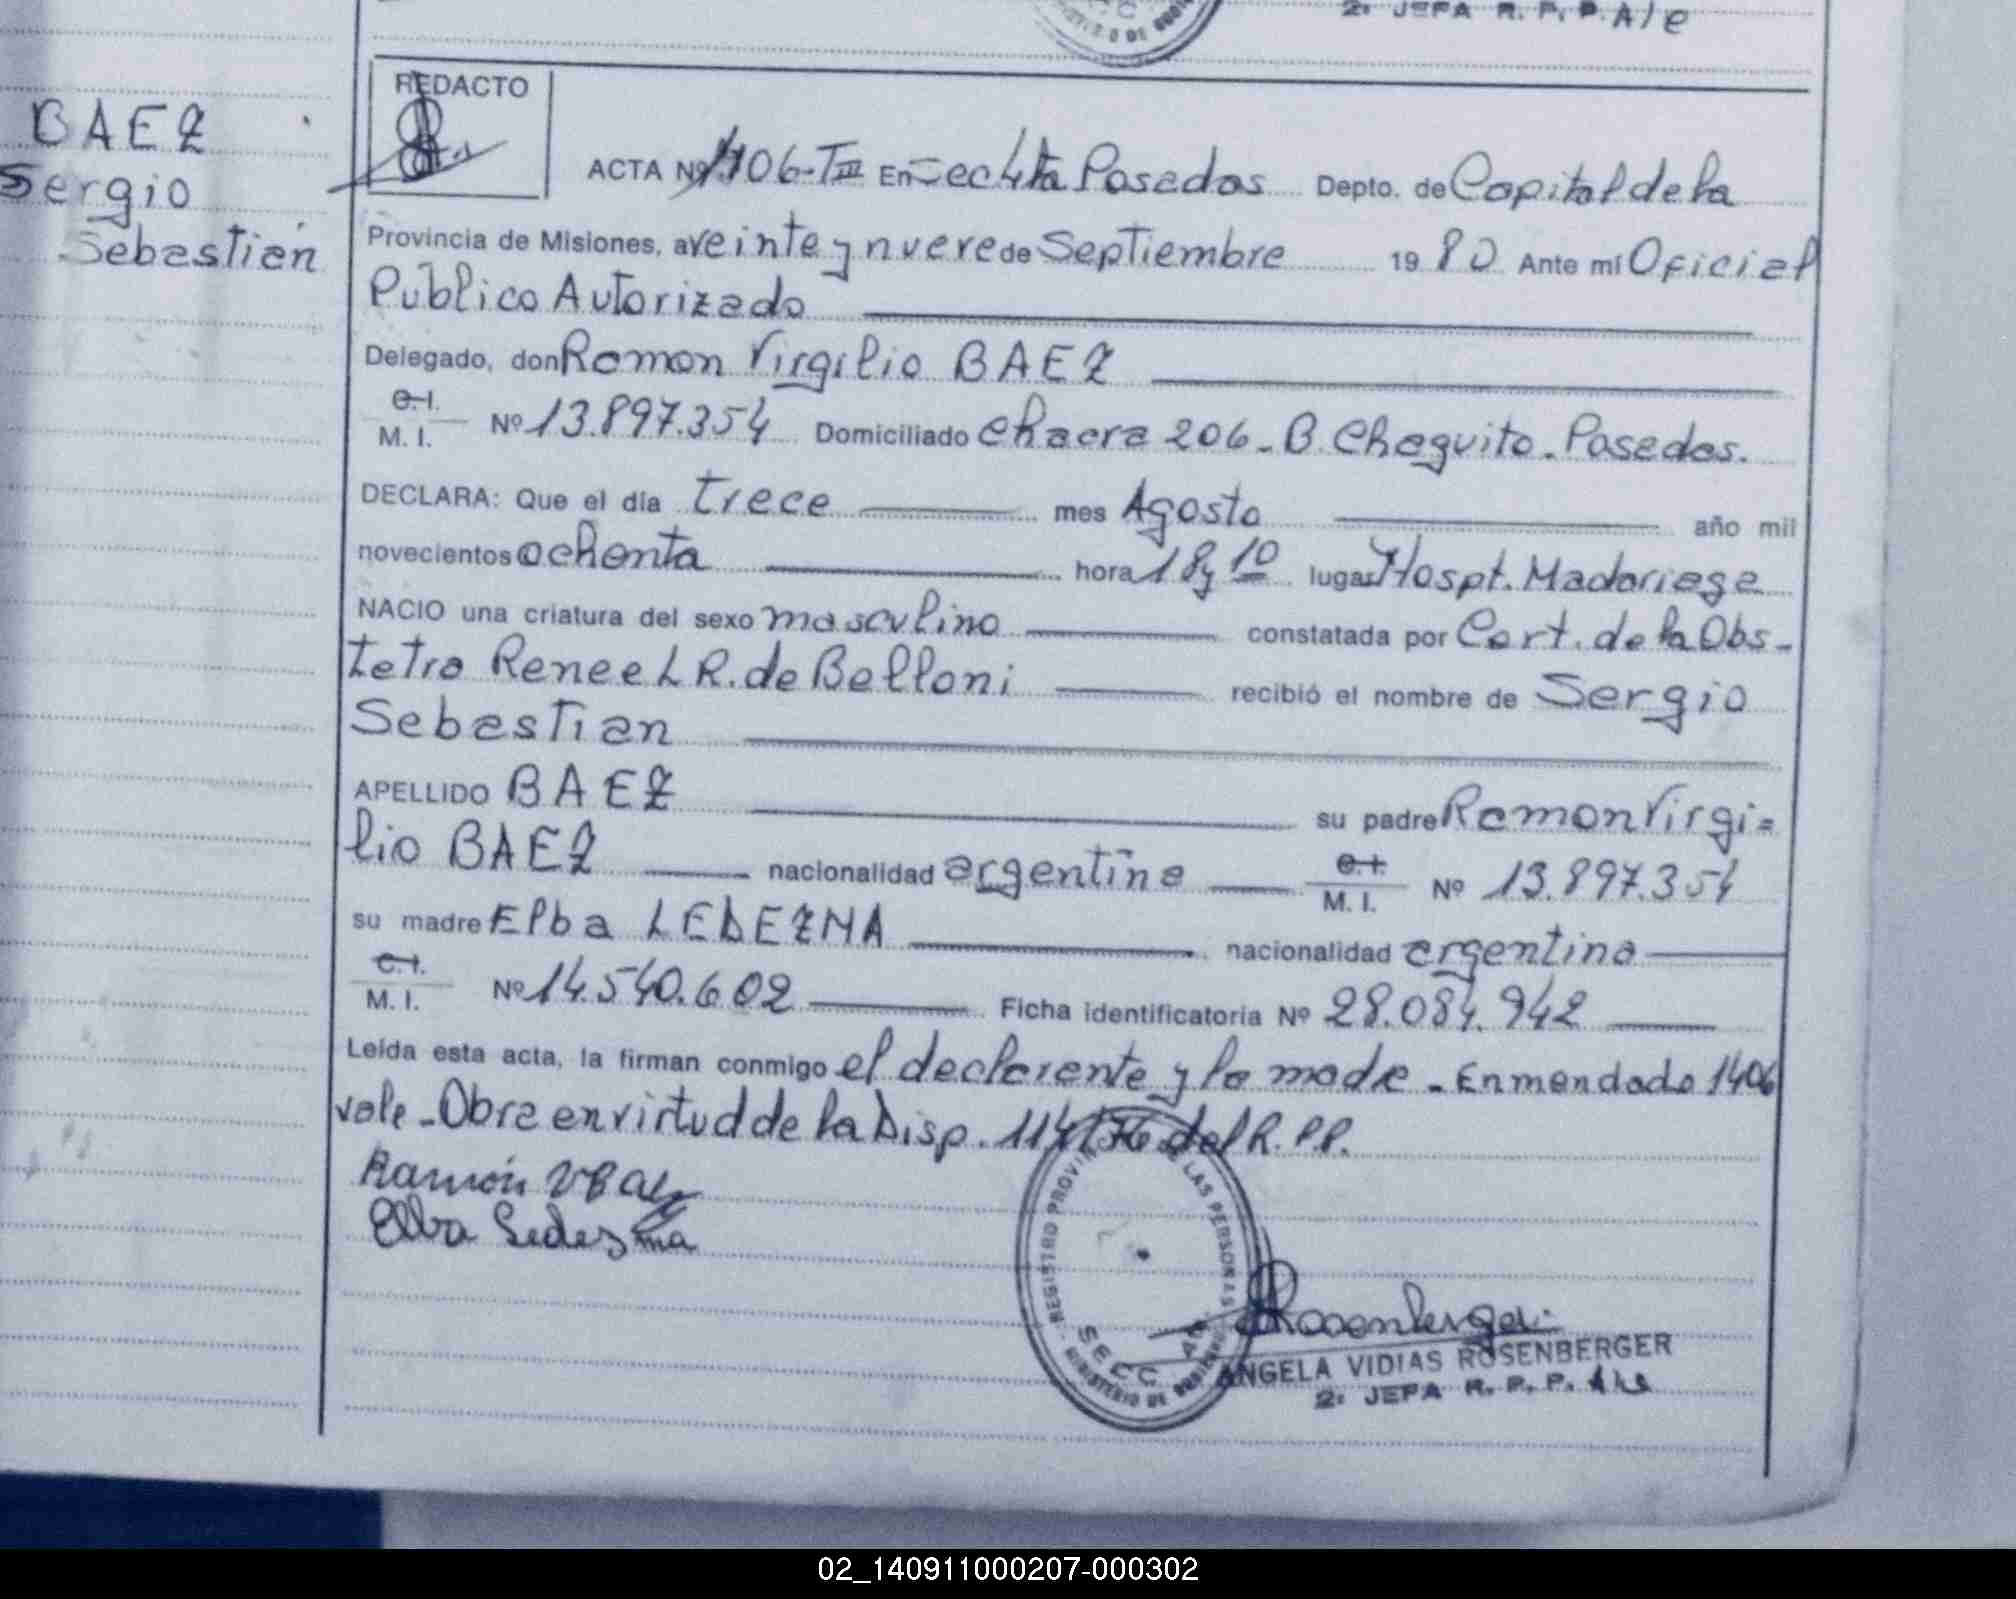 2: JEFA R. P. P. A/c
REDACTO
BAEZ
Sergio
Sebastián
ACTA Nº 1406-TIII En Secc 4ta Posadas Depto. de Capital de la
Provincia de Misiones, a veinte y nueve de Septiembre 19 80 Ante mí Oficial
Público Autorizado
Delegado, don Ramon Virgilio BAEZ
C.I.
M. I. Nº 13.897.354 Domiciliado Chacra 206 - B. Chaquito - Posadas.
DECLARA: Que el día trece mes Agosto año mil
novecientos ochenta hora 18 y 10 lugar Hospt. Madariaga
NACIO una criatura del sexo masculino constatada por Cert. de la Obs-
tetra Renee L R. de Belloni recibió el nombre de Sergio
Sebastian
APELLIDO BAEZ su padre Ramon Virgi=
lio BAEZ nacionalidad argentina C.I.
M. I. Nº 13.897.354
su madre Elba LEDEZMA nacionalidad argentina
C.I.
M. I. Nº 14.540.602 Ficha identificatoria Nº 28.084.942
Leída esta acta, la firman conmigo el declarante y la madre - Enmendado 1406
vale - Obra en virtud de la Disp. 114/76 del R. P.P.
Ramón V Baez
Elba Ledesma
REGISTRO PROVINCIAL DE LAS PERSONAS
SECC. 4a.
MINISTERIO DE GOBIERNO
Rosenberger
ANGELA VIDIAS ROSENBERGER
2: JEFA R. P. P. A/c
02_140911000207-000302